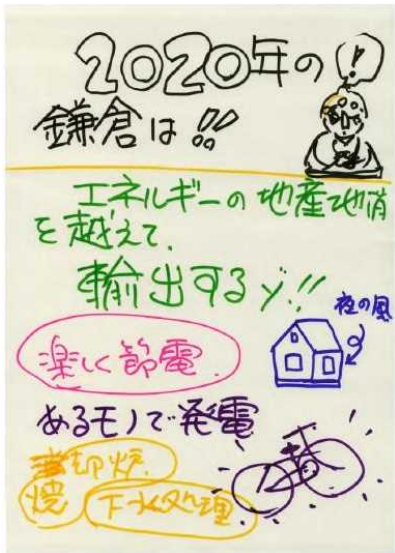 2020年の
!
鎌倉は!!
エネルギーの地産地消
を越えて、
輸出するゾ!!
夜の風
楽しく節電
あるモノで発電
焼却炉
下水処理